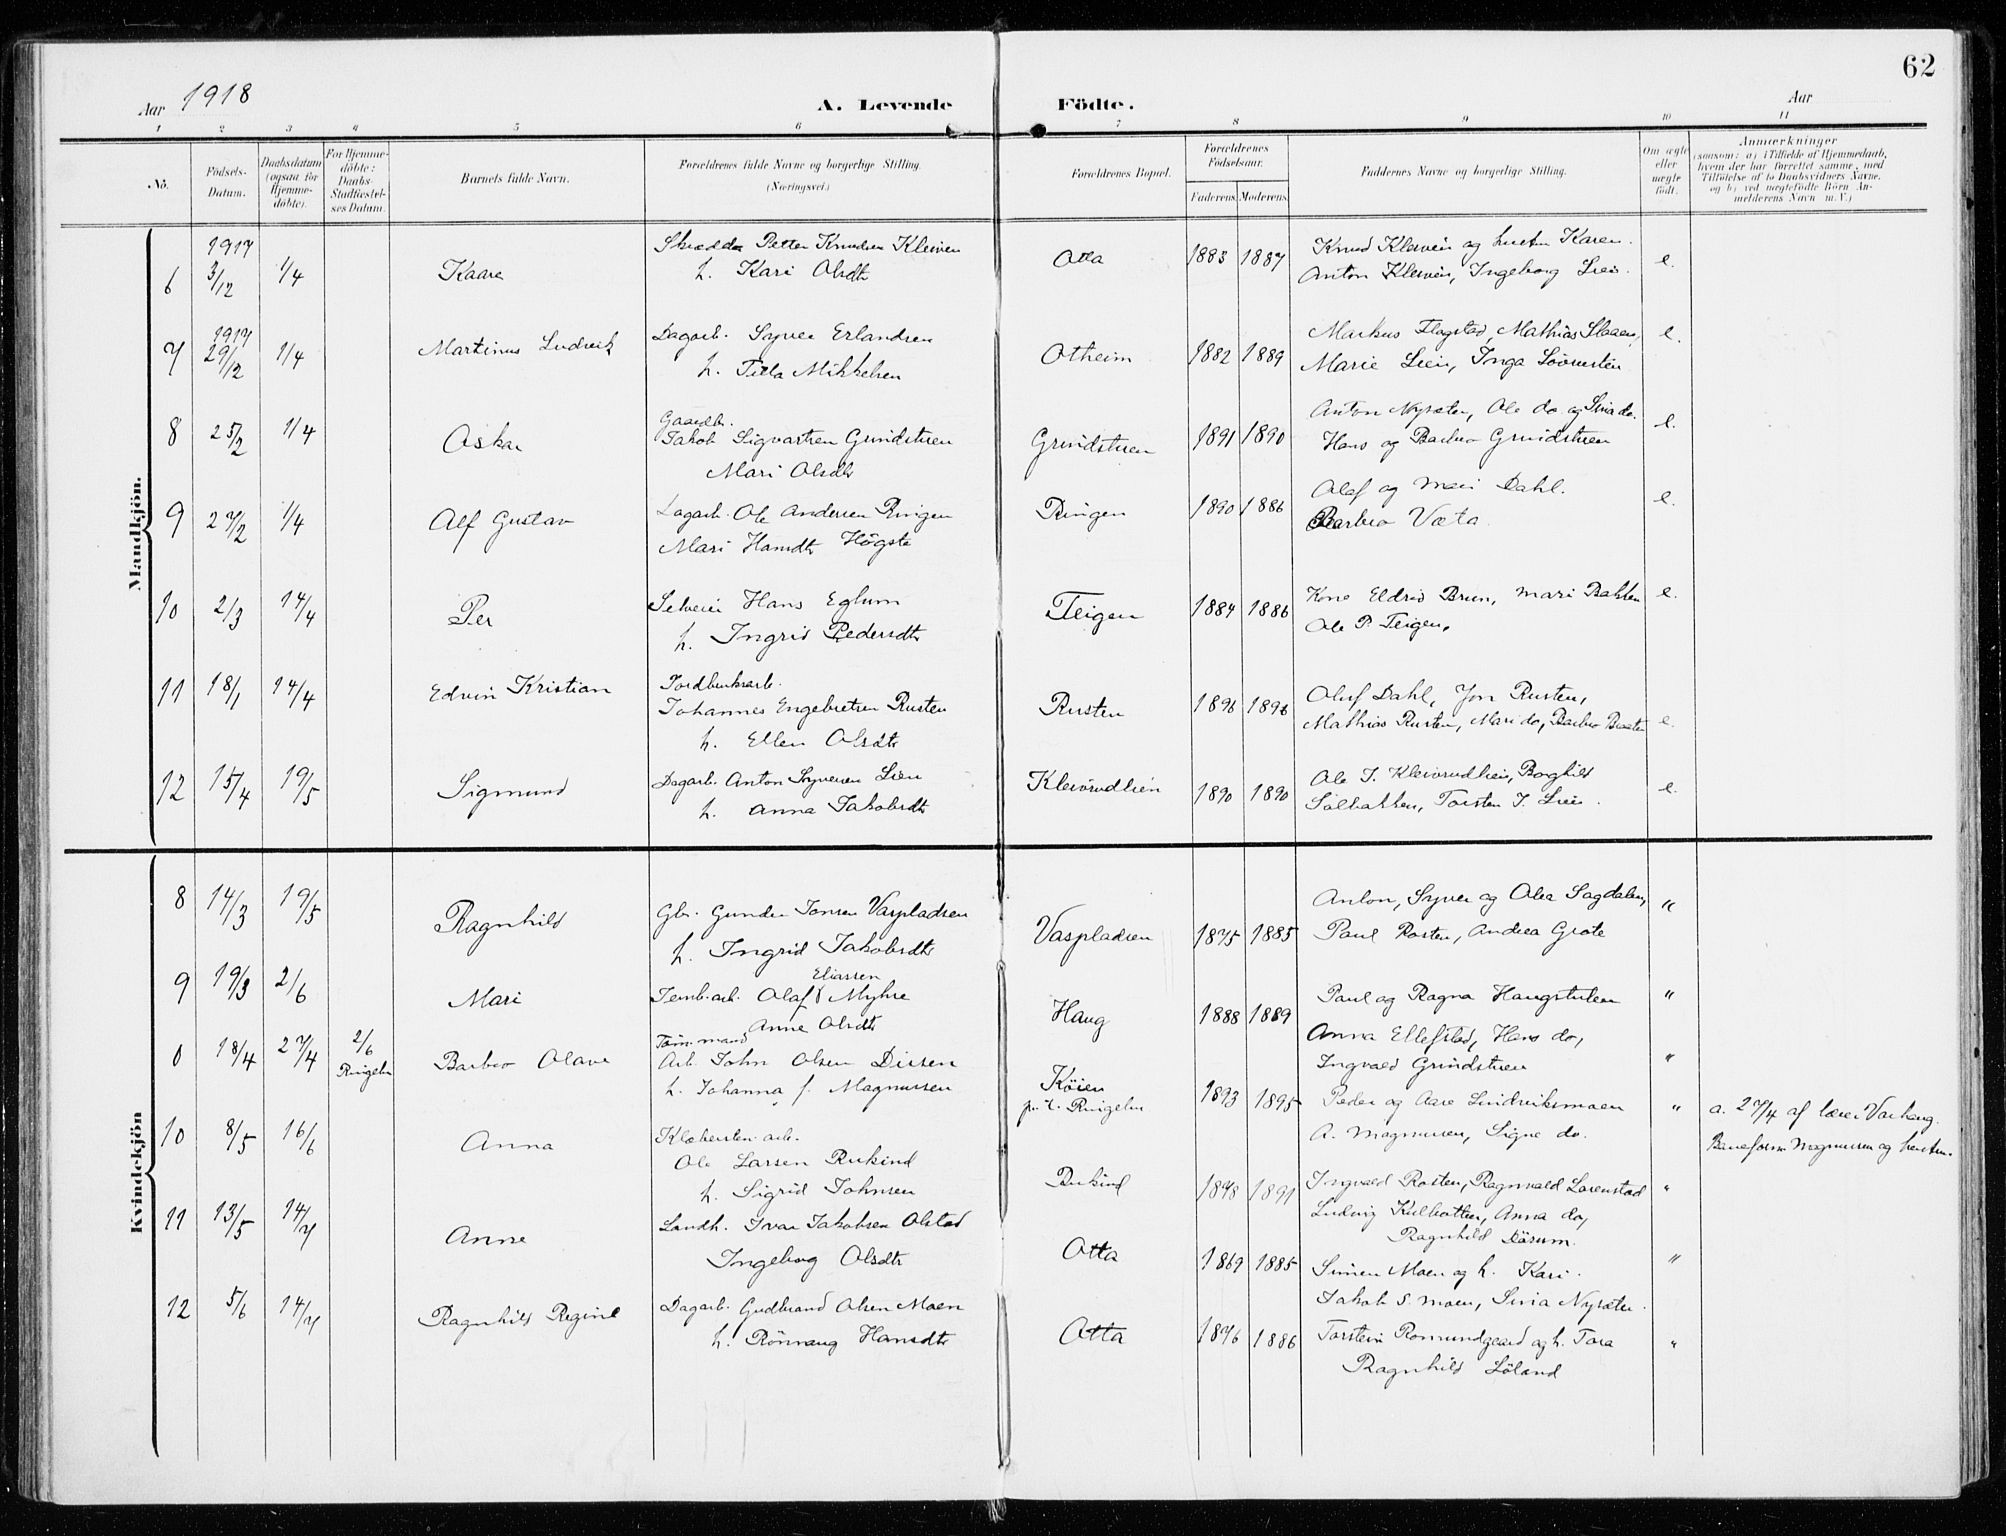 62
Aar 1918
A. Levende Födte.
Aar
1 2 3 4 5 6 7 8 9 10 11
Nö.
Födsels-Datum.
Daabsdatum (ogsaa for Hjemme-döbte).
For Hjemme-döbte: Daabs-Stadfæstel-ses Datum.
Barnets fulde Navn.
Forældrenes fulde Navne og borgerlige Stilling. (Næringsvei.)
Forældrenes Bopæl.
Forældrenes Födselsaar.
Faderens. Moderens.
Faddernes Navne og borgerlige Stilling.
Om ægte eller uægte født.
Anmærkninger
(saasom: a) i Tilfælde af Hjemmedaab, hvem der har forrettet samme, med Tilföielse af to Daabsvidners Navne. og b) ved uægtefödte Börn Anmelderens Navn m. V.)
Mandkjön.
6 1917 3/12 1/4 Kaare Petter Knudsen Kleiven Otta 1883 1887 Knud Kleiven og hustru Karen.
h. Kari Olsdtr Anton Kleiven, Ingeborg Lien. e.
7 1917 29/12 1/4 Martinus Ludvik Dagarb. Syver Erlandsen Otheim 1882 1889 Markus Flagstad, Mathias Slaaen, e.
h. Tilla Mikkelsen Marie Lien, Inga
8 25/2 1/4 Oskar Gaardbr. Grindstuen 1891 1890 Anton Nysæter, Ole do og Sina do. e.
Jakob Sigvartsen Grindstuen Hans og Barbro Grindstuen
Mari Olsdtr
9 27/2 1/4 Alf Gustav Dagarb. Ole Andersen Ringen Ringen 1890 1886 Olaf og Mari Dahl. e.
Mari Hansdtr Högste Barbro Væta.
10 2/3 14/4 Per Selveier Hans Eglum Teigen 1884 1886 Kone Eldrid Brun, Mari Bakken e.
h. Ingrid Pedersdtr Ole P. Teigen.
11 18/1 14/4 Edvin Kristian Jordbruksarb. Rusten 1896 1896 Oluf Dahl, Jon Rusten,
Johannes Engebretsen Rusten Mathias Rusten, Mari do, Barbro Braaten e.
h. Ellen Olsdtr
12 15/4 19/5 Sigmund Dagarb. Anton Syversen Lien Kleivrudlien 1890 1890 Ole J. Kleivrudlien, Borghild e.
h. Anna Jakobsdtr Solbakken, Torsten J. Lien.
Kvindekjön
8 14/3 19/5 Ragnhild Gbr. Gunder Jonsen Vaspladsen Vaspladsen 1875 1885 Anton, Syver og Olea Sagdalen, "
h. Ingrid Jakobsdtr Paul Rosten, Andrea Grote
9 19/3 2/6 Mari Eliassen
Jernb.arb. Olaf Myhre Haug 1888 1889 Paul og Ragna Haugstulen "
Anne Olsdtr Anna Ellefstad, Hans do,
Ingvald Grindstuen "
0 18/4 27/4 2/6 Ringebu Barbro Olave Tömmand
Arb. John Olsen Diesen Köien 1893 1895 Peder og Aase Lindviksmoen "
h. Johanna f. Magnussen p. t. Ringebu A. Magnussen, Signe do.
a. 27/4 af lærer Varhaug.
Baneform. Magnussen og hustru.
10 8/5 16/6 Anna Klæberstensarb.
Ole Larsen Rukind Rukind 1878 1891 Ingvald Rosten, Ragnvald Lorenstad "
h. Sigrid Johnsen Ludvig Kulbotten, Anna do,
11 13/5 14/7 Anne Landh. Ivar Jakobsen Olstad Otta 1869 1885 Ragnhild
Ingeborg Olsdtr Simen Moen og h. Kari. "
Jakob S. Moen, Sina Nysæter.
12 5/6 14/7 Ragnhild Regine Dagarb. Gudbrand Olsen Moen Otta 1876 1886 Torstein Romundgaard og h. Tora "
h. Rönnaug Hansdtr Ragnhild Löland